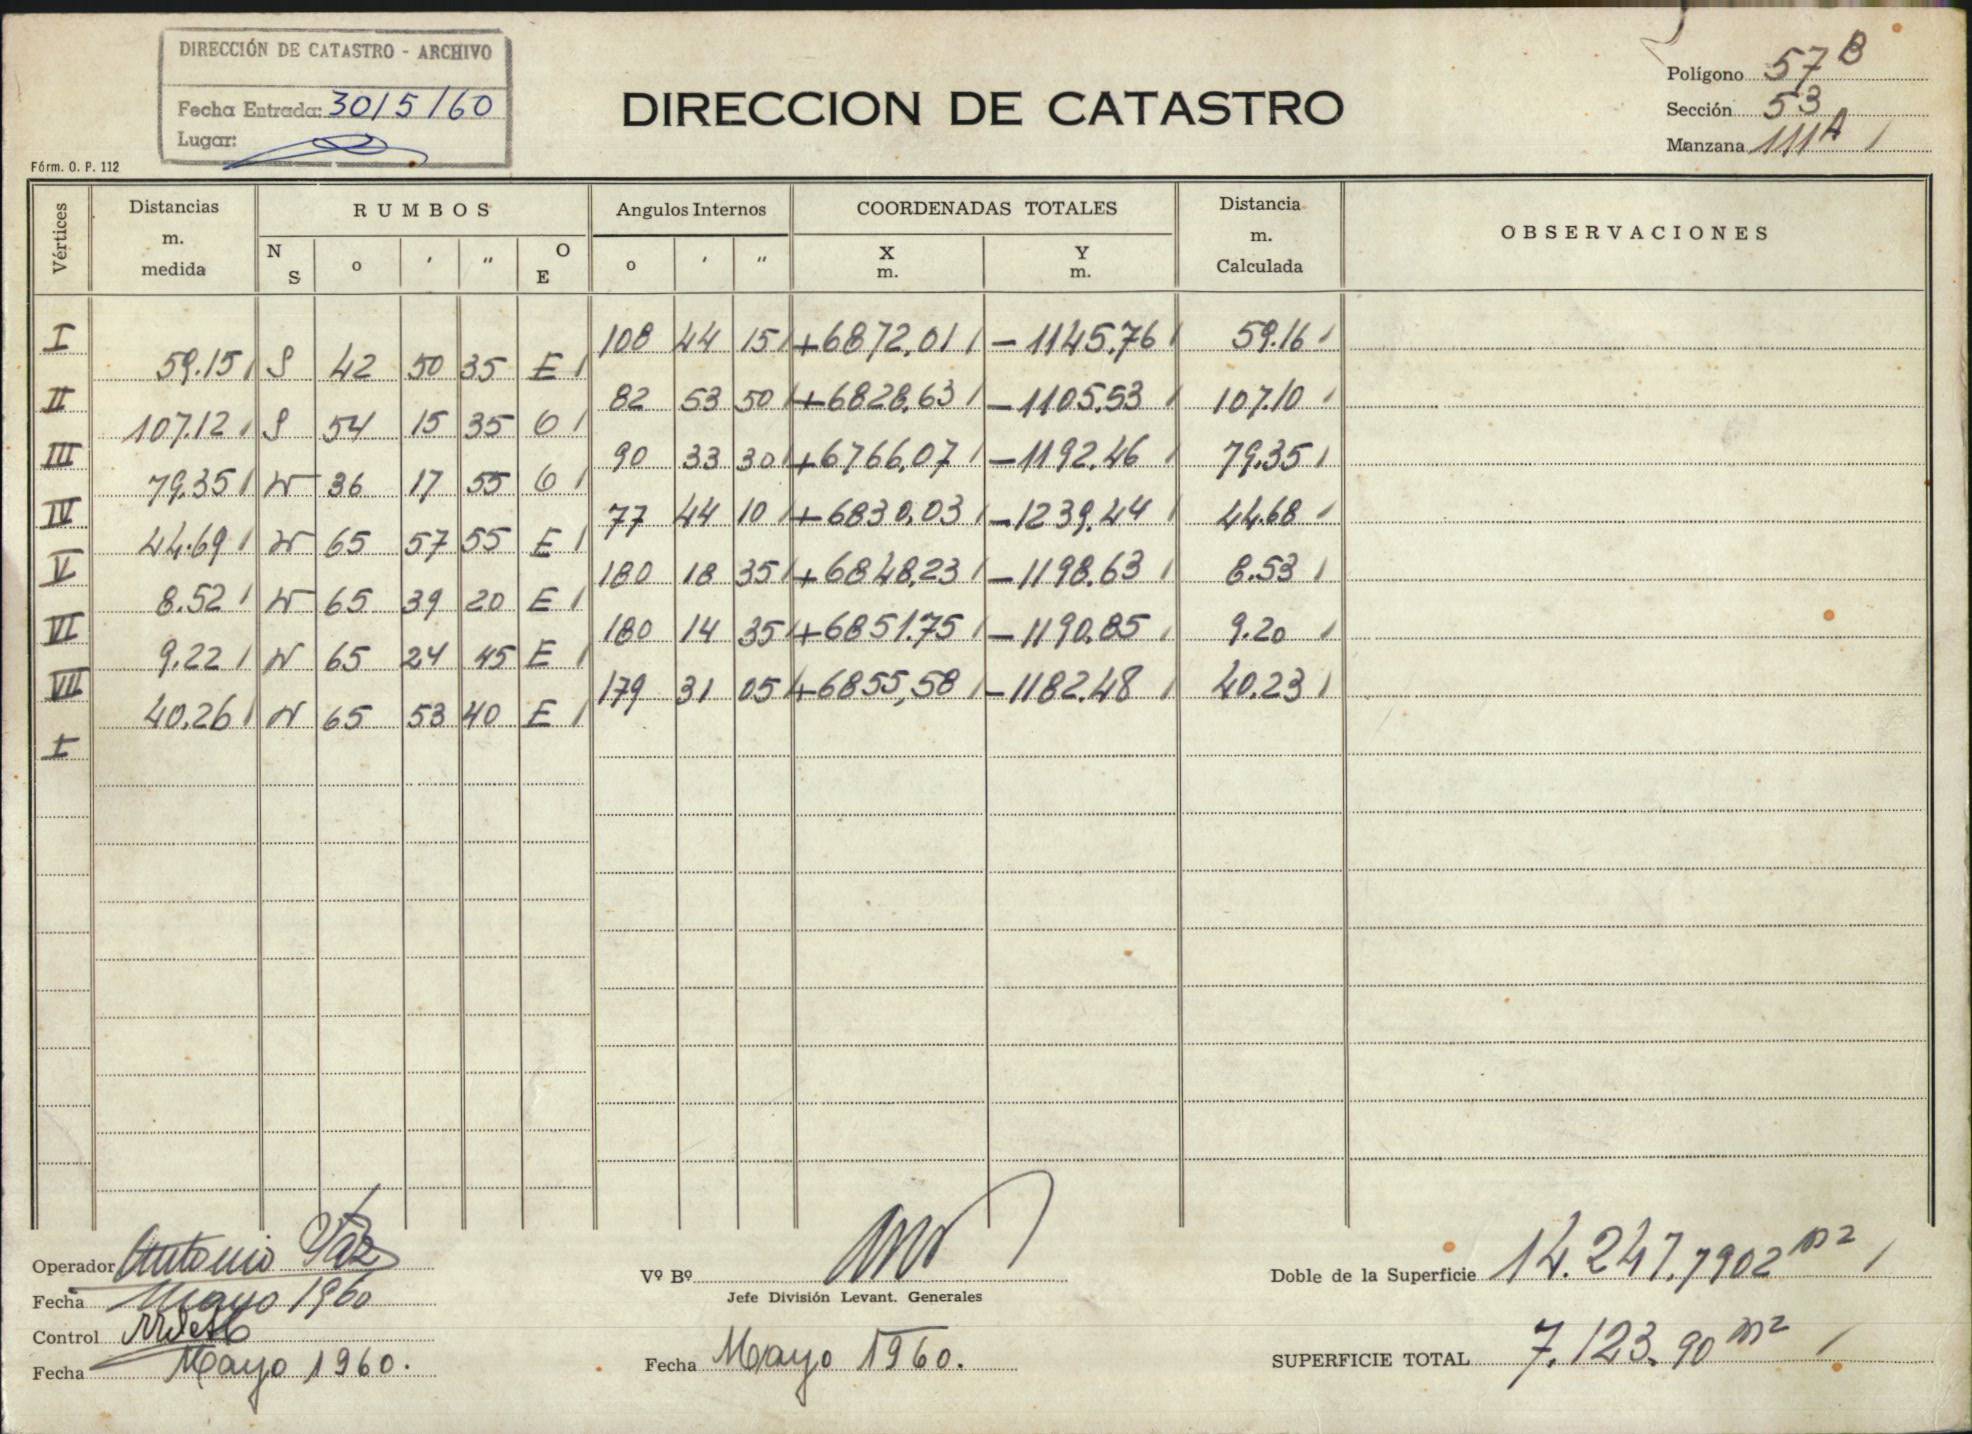 DIRECCIÓN DE CATASTRO - ARCHIVO
Fecha Entrada: 30/5/60
Lugar:
Fórm. O. P. 112
DIRECCION DE CATASTRO
Polígono 57 B
Sección 53
Manzana 111 A /
Vértices Distancias m. medida RUMBOS Angulos Internos COORDENADAS TOTALES Distancia m. Calculada OBSERVACIONES
N S o ' " O E o ' " X m. Y m.
I 108 44 15 / +6872,01 / -1145,76 / 59.16 /
59.15 / S 42 50 35 E /
II 82 53 50 / +6828,63 / -1105,53 / 107.10 /
107.12 / S 54 15 35 O /
III 90 33 30 / +6766,07 / -1192.46 / 79.35 /
79.35 / N 36 17 55 O /
IV 77 44 10 / +6830,03 / -1239.44 / 44.68 /
44.69 / N 65 57 55 E /
V 180 18 35 / +6848,23 / -1198.63 / 8.53 /
8.52 / N 65 39 20 E /
VI 180 14 35 / +6851.75 / -1190,85 / 9.20 /
9.22 / N 65 24 45 E /
VII 179 31 05 / +6855,58 / -1182.48 / 40.23 /
40.26 / N 65 53 40 E /
I
Operador Antonio Váz
Fecha Mayo 1960
Control
Fecha Mayo 1960.
Vº Bº
Jefe División Levant. Generales
Fecha Mayo 1960.
Doble de la Superficie 14.247.7902 m2 /
SUPERFICIE TOTAL 7.123.90 m2 /